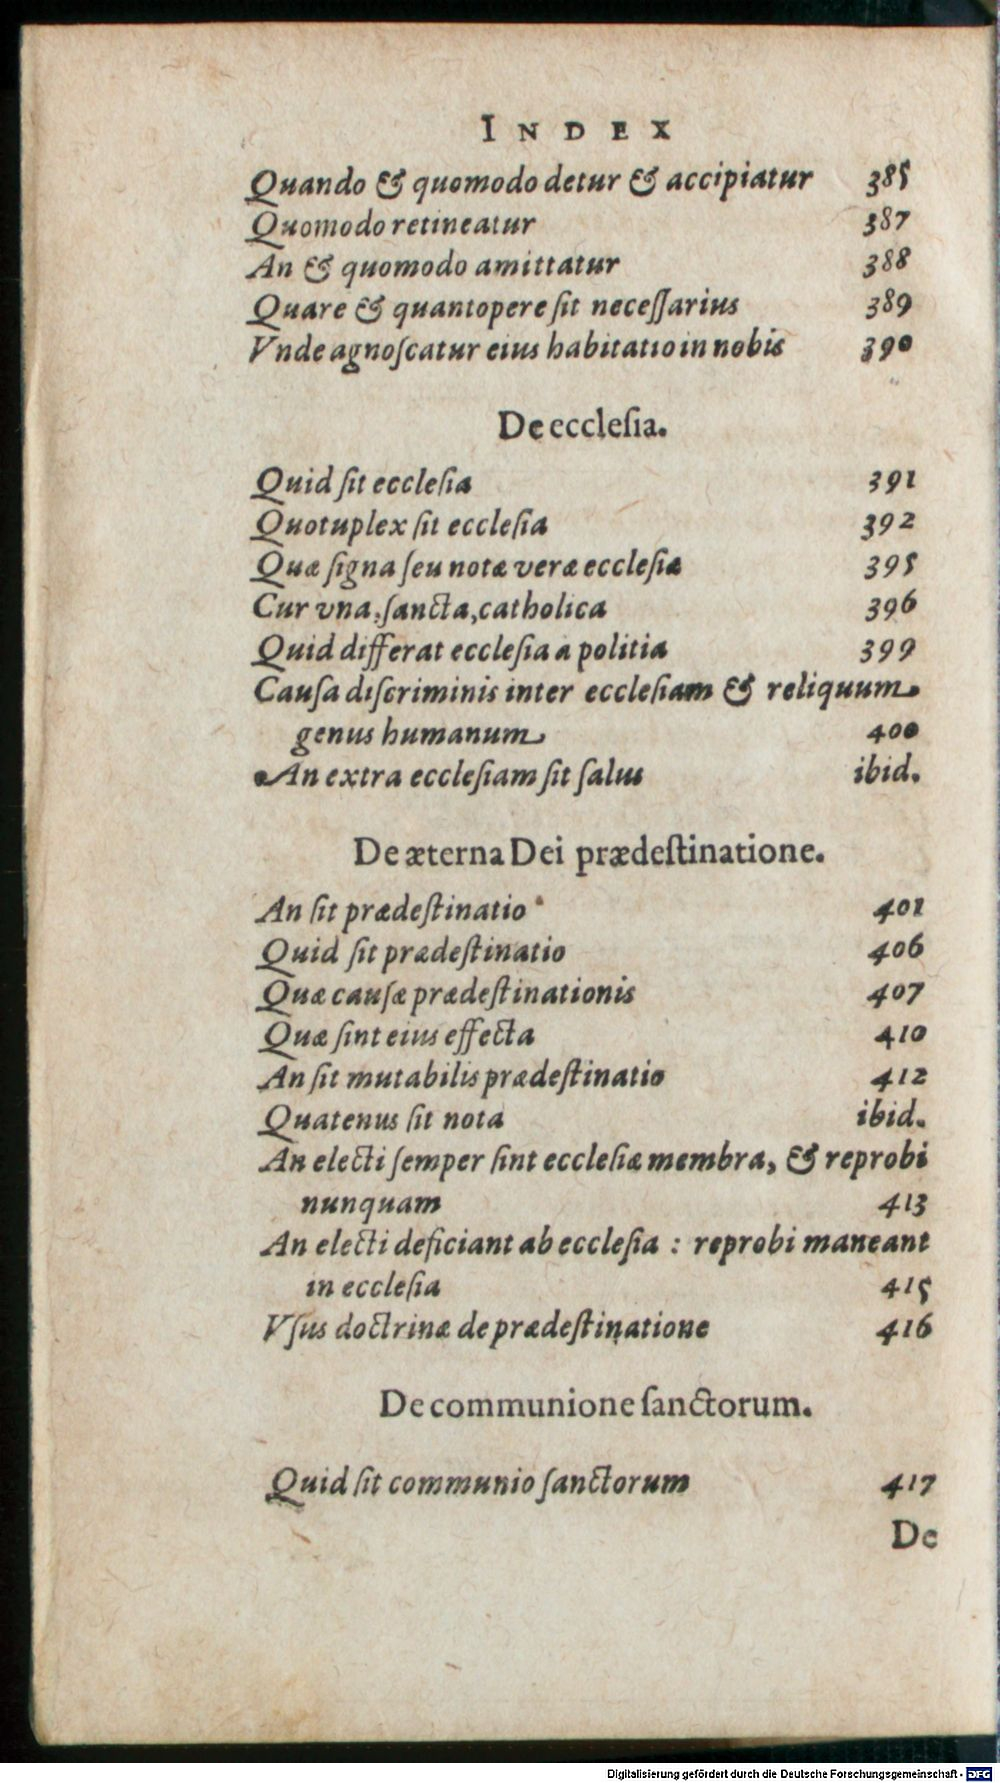 INDEX
Quando & quomodo detur & accipiatur 385
Quomodo retineatur 387
An & quomodo amittatur 388
Quare & quantopere ſit neceſſarius 389
Vnde agnoſcatur eius habitatio in nobis 390
De eccleſia.
Quid ſit eccleſia 391
Quotuplex ſit eccleſia 392
Quæ ſigna ſeu notæ veræ eccleſiæ 395
Cur vna, ſancta, catholica 396
Quid differat eccleſia a politia 399
Cauſa diſcriminis inter eccleſiam & reliquum
genus humanum 400
An extra eccleſiam ſit ſalus ibid.
De æterna Dei prædeſtinatione.
An ſit prædeſtinatio 401
Quid ſit prædeſtinatio 406
Quæ cauſæ prædeſtinationis 407
Quæ ſint eius effecta 410
An ſit mutabilis prædeſtinatio 412
Quatenus ſit nota ibid.
An electi ſemper ſint eccleſiæ membra, & reprobi
nunquam 413
An electi deficiant ab eccleſia : reprobi maneant
in eccleſia 415
Vſus doctrinæ de prædeſtinatione 416
De communione ſanctorum.
Quid ſit communio ſanctorum 417
De
Digitalisierung gefördert durch die Deutsche Forschungsgemeinschaft - DFG